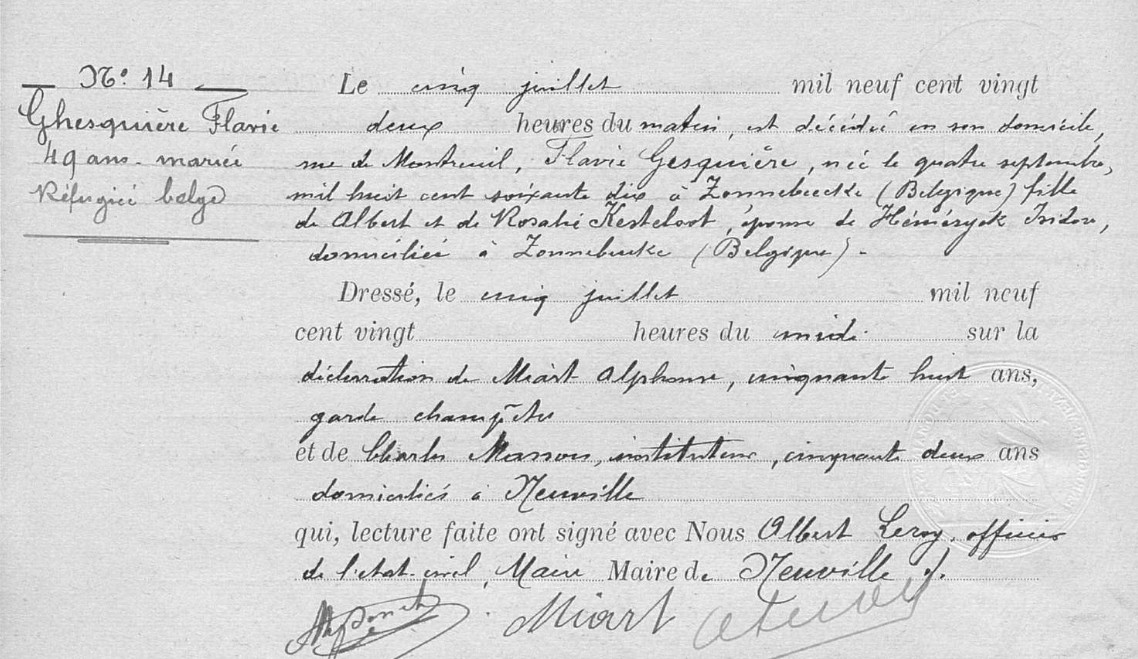 N° 14
Ghesquière Flavie
49 ans - mariée
Réfugiée belge
Le cinq juillet mil neuf cent vingt
deux heures du matin, est décédée en son domicile,
rue de Montreuil, Flavie Gesquière, née le quatre septembre,
mil huit cent soixante dix à Zonnebeecke (Belgique) fille
de Albert et de Rosalie Kesteloot, épouse de Isidore,
domiciliée à Zonnebeecke (Belgique) -
Dressé, le cinq juillet mil neuf
cent vingt heures du midi sur la
déclaration de Miart Alphonse, cinquante huit ans,
garde champêtre
et de Charles, instituteur, cinquante deux ans
domiciliés à Neuville
qui, lecture faite ont signé avec Nous Albert Leroy, officier
de l'état-civil, Maire Maire de Neuville
Miart